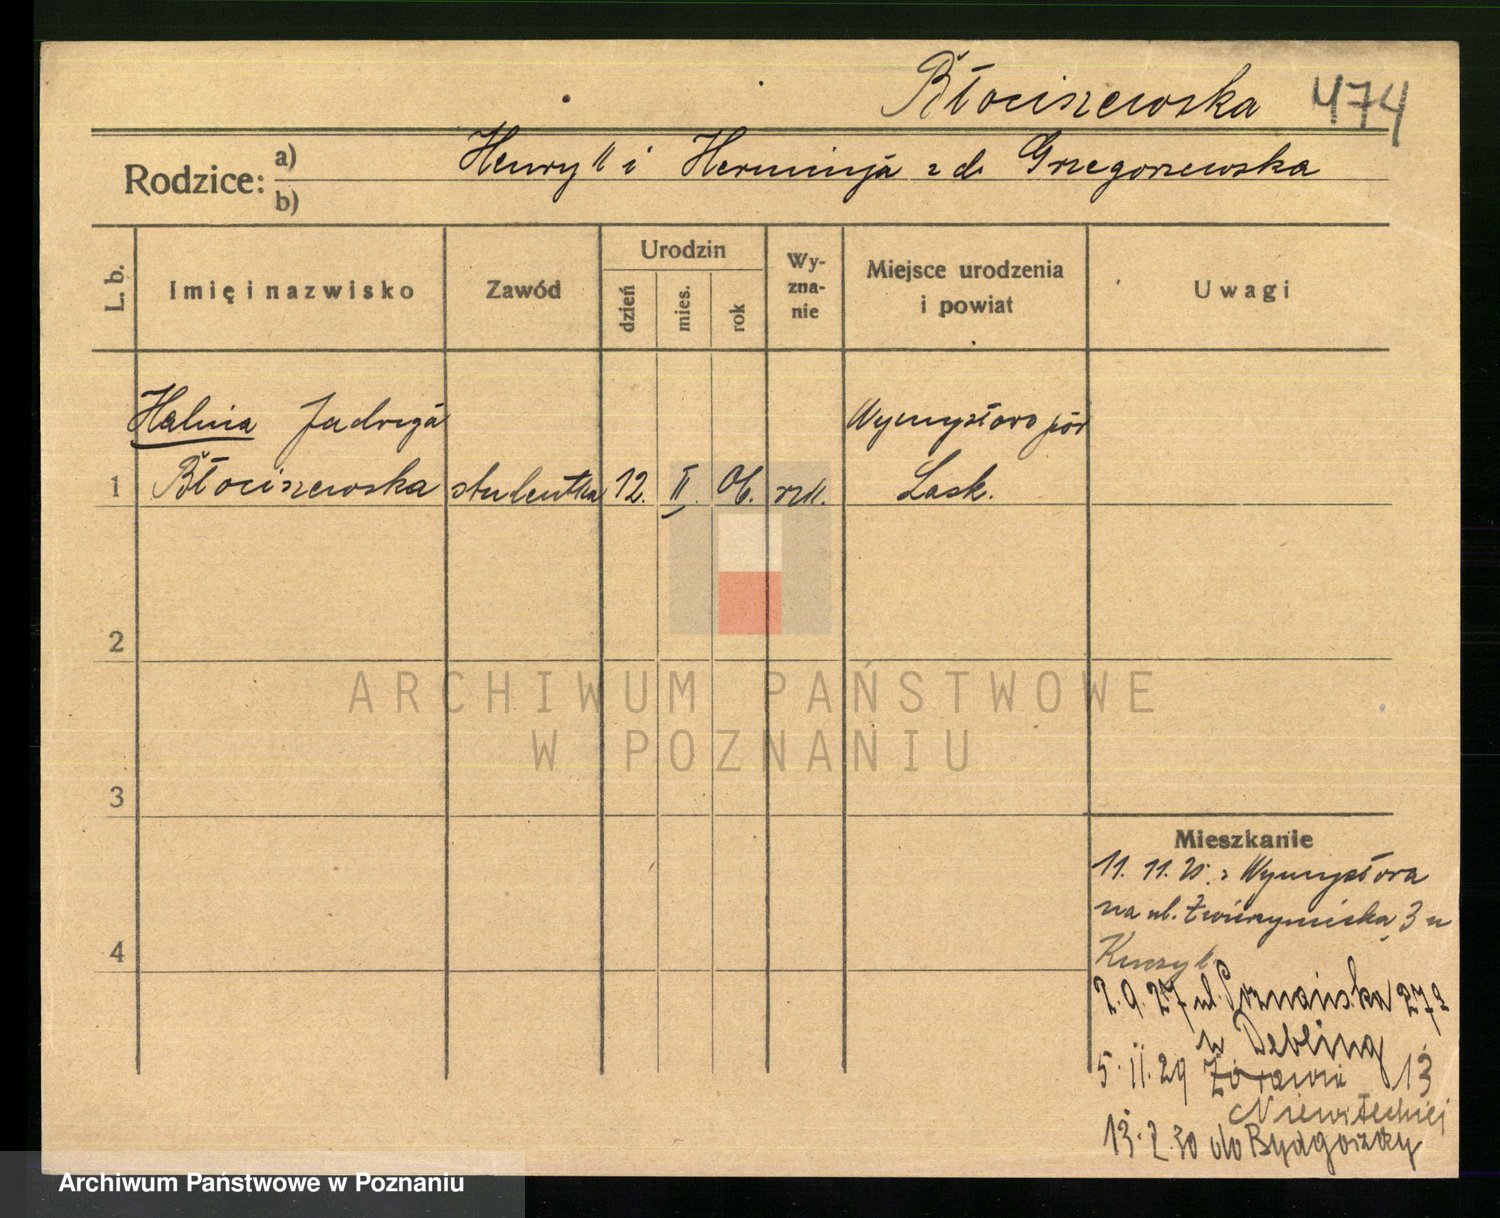 Błociszewska 474
Rodzice: a) b)
Henryk i Herminja z d. Grzegorzewska
L. b.
Imię i nazwisko
Zawód
Urodzin
dzień
mies.
rok
Wy-
zna-
nie
Miejsce urodzenia
i powiat
Uwagi
Halina Jadwiga
Wymysłowo pow
1 Błociszewska studentka 12. II. 06. rzk. Łask.
2
3
4
ARCHIWUM PAŃSTWOWE
W POZNANIU
Mieszkanie
11. 11. 25. z Wymysłowa
na ul. Zwierzyniecka 3 u
2.9.27 ul. Poznańska 27a
u Debling
5.11.29 Żórawia 13
13.2.30 do Bydgoszczy
Archiwum Państwowe w Poznaniu